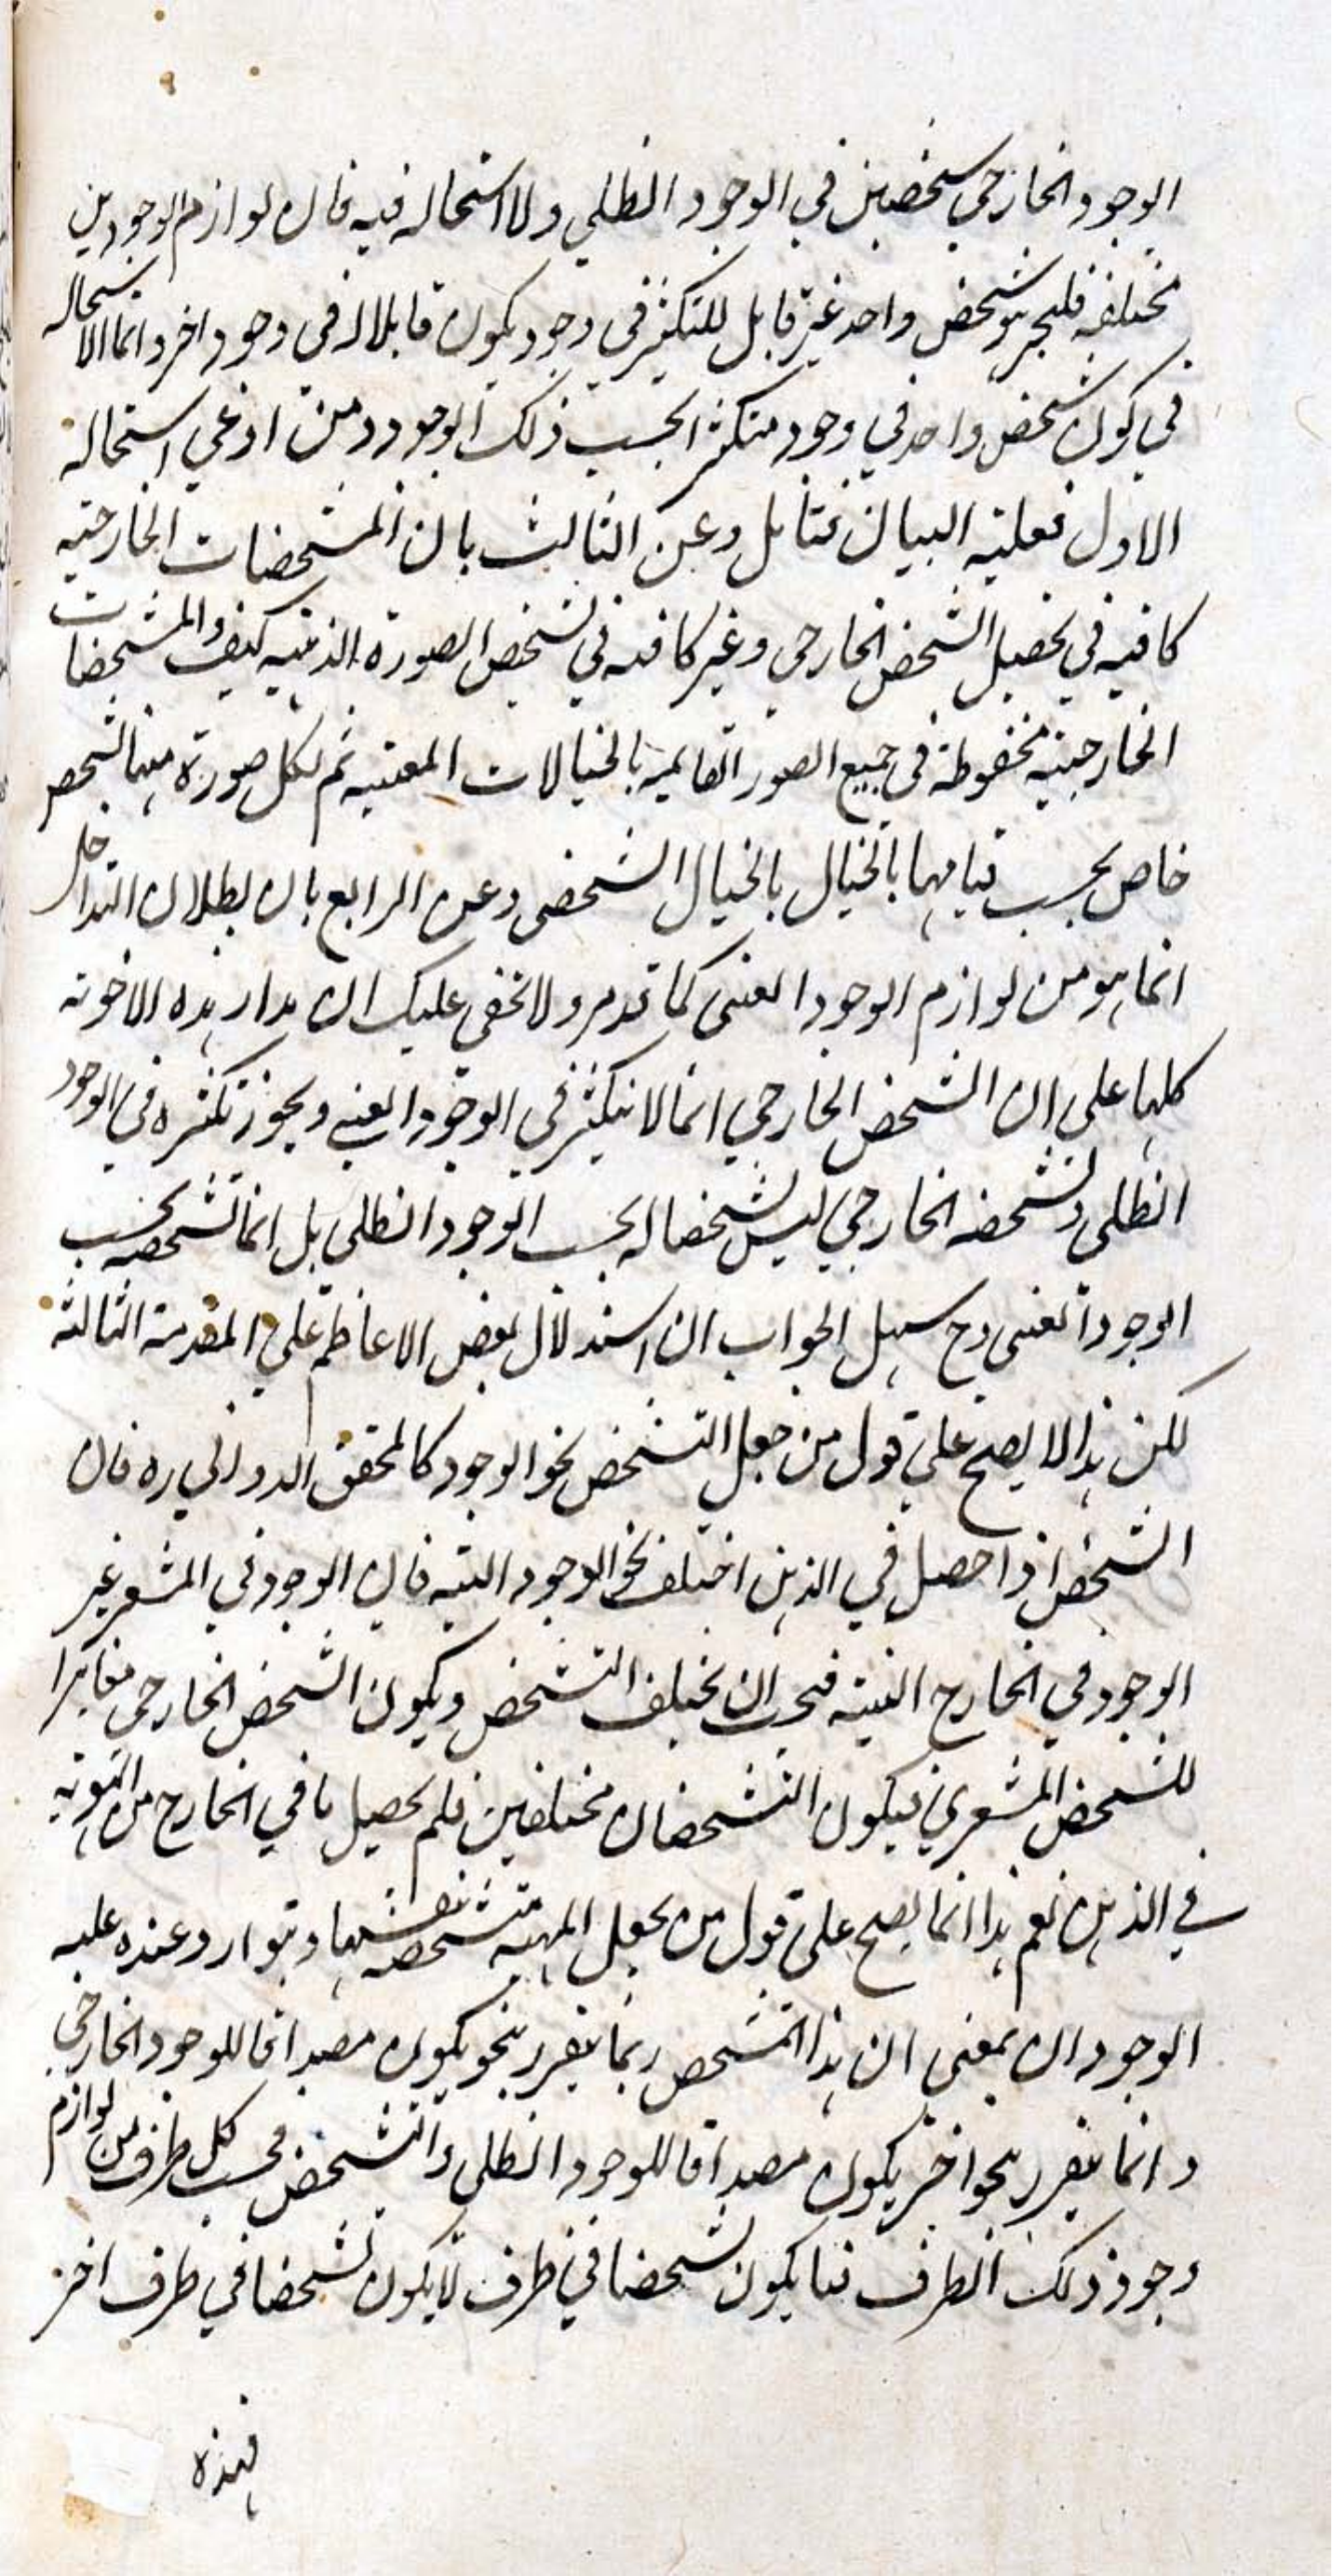 الوجود الخارجي شخصين في الوجود الظلي ولا استحاله فيه فان لوازم الوجودين
مختلفه فليجز شخص واحد غير قابل للتكثر في وجود يكون قابلا له في وجود اخر وانما الاستحاله
في كون شخص واحد في وجود متكثرا بحسب ذلك الوجود ومن ادعي استحاله
الاول فعليه البيان فتامل وعن الثالث بان المشخصات الخارجيه
كافيه في تحصيل الشخص الخارجي وغير كافيه في تشخص الصورة الذهنيه كيف والمشخصات
الخارجيه محفوظة في جميع الصور القايمه بالخيالات المعينه ثم لكل صورة منها تشخص
خاص بحسب قيامها بالخيال بالخيال الشخصي وعن الرابع بان بطلان التداخل
انما هو من لوازم الوجود العيني كما قد مر ولا يخفي عليك ان مدار هذه الاجوبه
كلها علي ان الشخص الخارجي انما لا يتكثر في الوجود العيني ويجوز تكثره في الوجود
الظلي وتشخصه الخارجي ليس تشخصا له بحسب الوجود الظلي بل انما تشخصه بحسب
الوجود العيني وح سبيل الجواب ان استدلال بعض الاعاظم علي المقدمة الثالثة
لكن هذا لا يصح علي قول من جعل التشخص نحو الوجود كالمحقق الدواني ره فان
الشخص اذا حصل في الذهن اختلف نحو الوجود البته فان الوجود في المشعر غير
الوجود في الخارج البته فيجب ان يختلف التشخص ويكون الشخص الخارجي مغايرا
للشخص المشعري فيكون التشخصان مختلفين فلم يحصل ما في الخارج من الهويه
في الذهن نعم هذا انما يصح علي قول من يجعل المهيه متشخصه بنفسها ويتوارد عنده عليه
الوجودان بمعني ان هذا المتشخص ربما يتقرر بنحو يكون مصداقا للوجود الخارجي
وانما يتقرر بنحو اخر يكون مصداقا للوجود الظلي والتشخص بحسب كل ظرف من لوازم
وجود ذلك الظرف فما يكون تشخصا في ظرف لا يكون تشخصا في ظرف اخر
فهذه